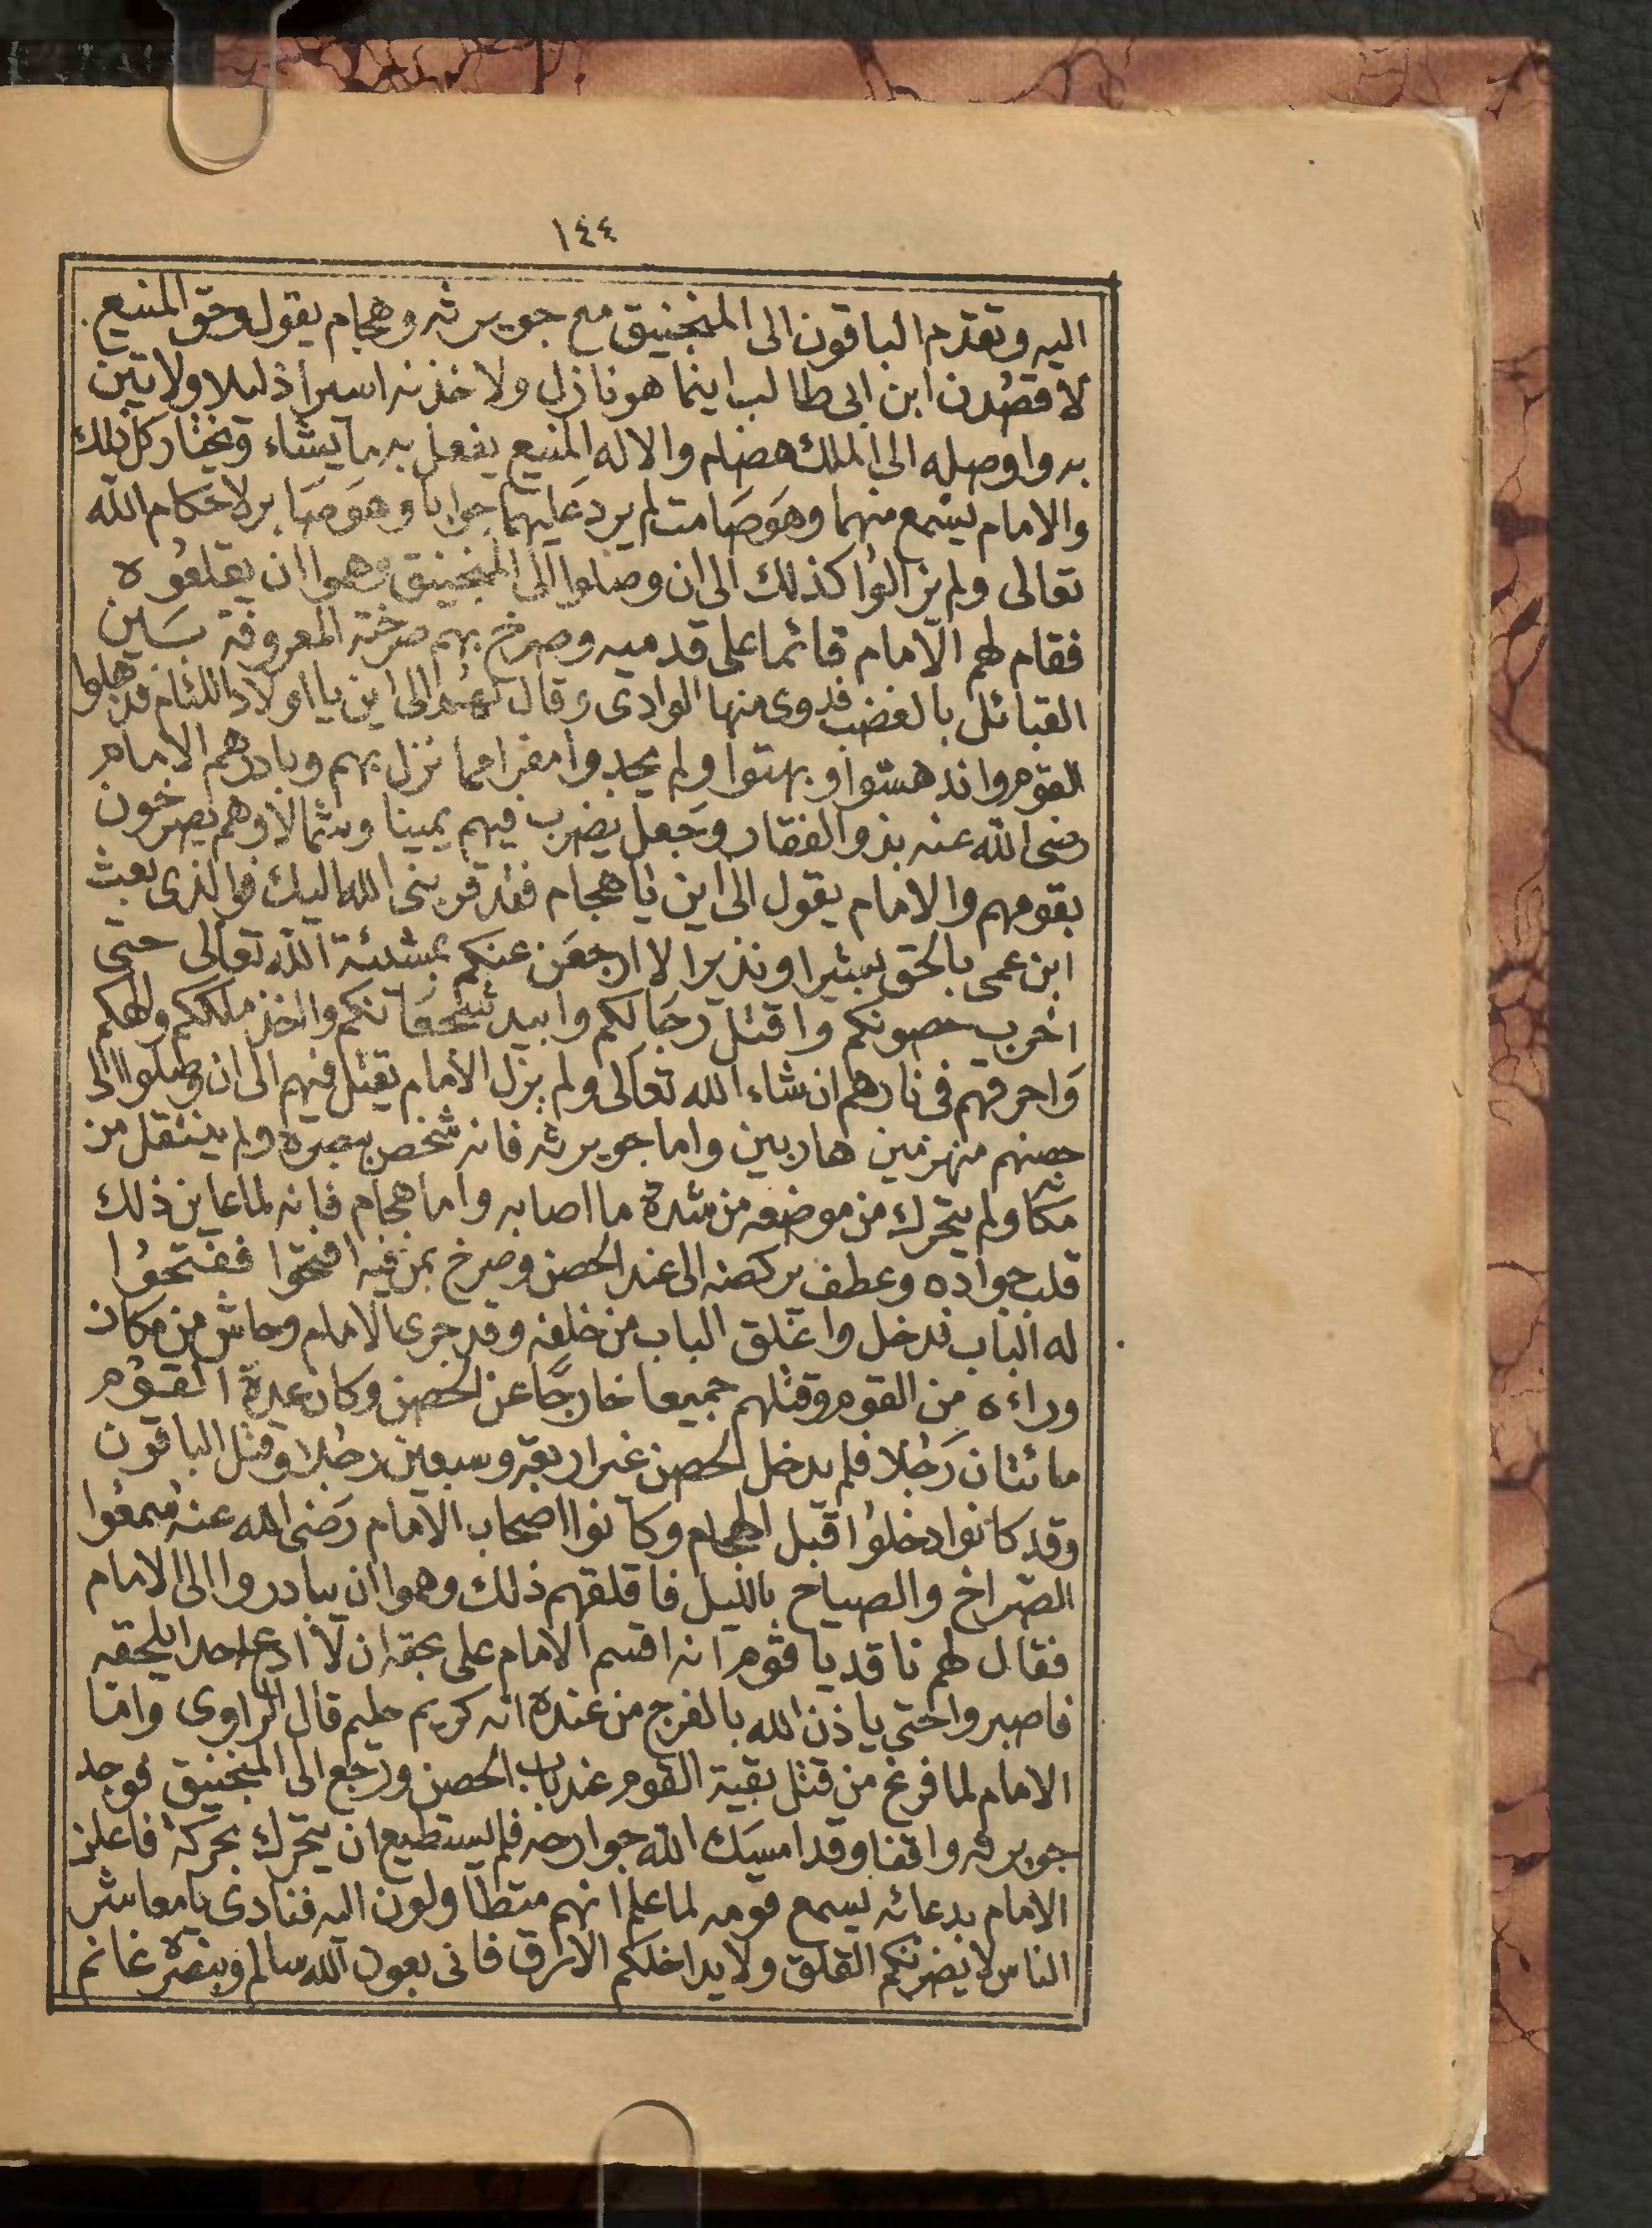 ١٤٤
اليه وتقدم الباقون الى المنجنيق مع جويرثه وهجام يقول وحق المنيع
لاقصُدن ابن ابى طالب اينما هو نازل ولاخذنه اسيرا ذليلا ولاتين
به واوصله الى الملك هضام والاله المنيع يفعل به ما يشاء ويختار كل ذلك
والامام يسمع منهما وهو صَامت لم يرد عَليهما جوابا وهو صَابر لاحَكام الله
تعالى ولم يزالوُا كذلك الى ان وصلوا الى المنجنيق وهموا ان يقلعُوه
فقام لهم الامام قائما على قدميه وصرخ بهم صرخته المعروفة بَين
القبائل بالغضب فدوى منها الوادى وقال لهم الى اين يا اولاد اللئام فذهلوا
القوم واندهشوا وبهتوا ولم يجدوا مفرا مما نزل بهم وبادرهم الامام
رضى الله عنه بذو الفقار وجعل يضرب فيهم يمينا وشمالا وهم يصرخون
بقومهم والامام يقول الى اين يا هجام فقد قربنى الله اليك فوالذى بعث
ابن عمى بالحق بشيرا ونذيرا لا ارجعَن عنكم بمشئة الله تعالى حتى
اخرب حصونكم واقتل رجَالكم وابيد شجعَانكم واخذ ملككم والهكم
وَاحرقهم فى نارهم ان شاء الله تعالى ولم يزل الامام يقتل فيهم الى ان وصلوا الى
حصنهم منهزمين هاربين واما جويرثه فانه شخص ببصره ولم ينتقل من
مكانه ولم يتحرك من موضعه من شدة ما اصابه واما هجام فانه لما عاين ذلك
قلب جواده وعطف بركضه الى عند الحصن وصرخ بمن فيه افتحوا ففتحوُا
له الباب فدخل واغلق الباب من خلفه وقد جرى الامام وحاش من مكان
وراءه من القوم وقتلهم جميعا خارجًا عن الحصن وكان عدة القوم
مائتان رَجُلا فلم يدخل الحصن غير اربعة وسبعين رجُلا وقتل الباقون
وقد كانوا دخلوُا قبل الهجام وكانوا اصحاب الامام رَضى الله عنه سمعُوا
الصّراخ والصياح بالليل فاقلقهم ذلك وهموا ان يبادروا الى الامام
فقال لهم ناقد يا قوم انه اقسم الامام على بحقه ان لا ادع احدا يلحقه
فاصبروا حتى ياذن الله بالفرج من عنده انه كريم حليم قال الراوى واما
الامام لما فرغ من قتل بقية القوم عند باب الحصن ورجع الى المنجنيق فوجد
جويرثه واقفا وقد امسَك الله جوارحه فلم يستطيع ان يتحرك بحركة فاعلن
الامام بدعائه ليسمع قومه لما علم انهم متطاولون اليه فنادى يا معاشر
الناس لا يضرنكم القلق ولا يداخلكم الارق فانى بعون الله سالم وبنصره غانم